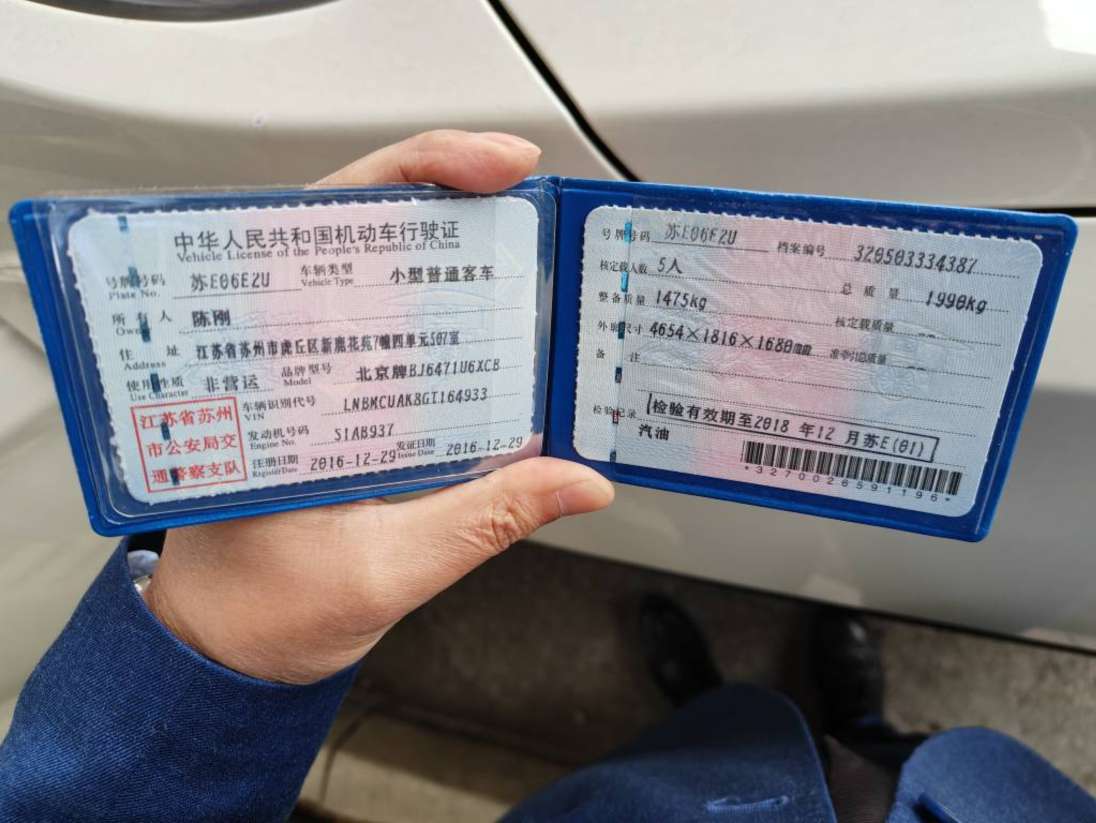 中华人民共和国机动车行驶证
Vehicle License of the People's Republic of China
号牌号码 苏E06E2U 车辆类型 小型普通客车
Plate No. Vehicle Type
所有人 陈刚
Owner
住址 江苏省苏州市虎丘区新鹿花苑7幢四单元507室
Address
使用性质 非营运 品牌型号 北京牌BJ6471U6XCB
Use Character Model
江苏省苏州
市公安局交
通警察支队
车辆识别代号 LNBMCUAK8GT164933
VIN
发动机号码 51AB937
Engine No.
注册日期 2016-12-29 发证日期 2016-12-29
Register Date Issue Date
号牌号码 苏E06E2U 档案编号 320503334387
核定载人数 5人 总质量 1990kg
整备质量 1475kg 核定载质量 --
外廓尺寸 4654×1816×1680mm 准牵引总质量 --
备注
检验记录 检验有效期至2018年12月苏E(01)
汽油
*3270026591196*